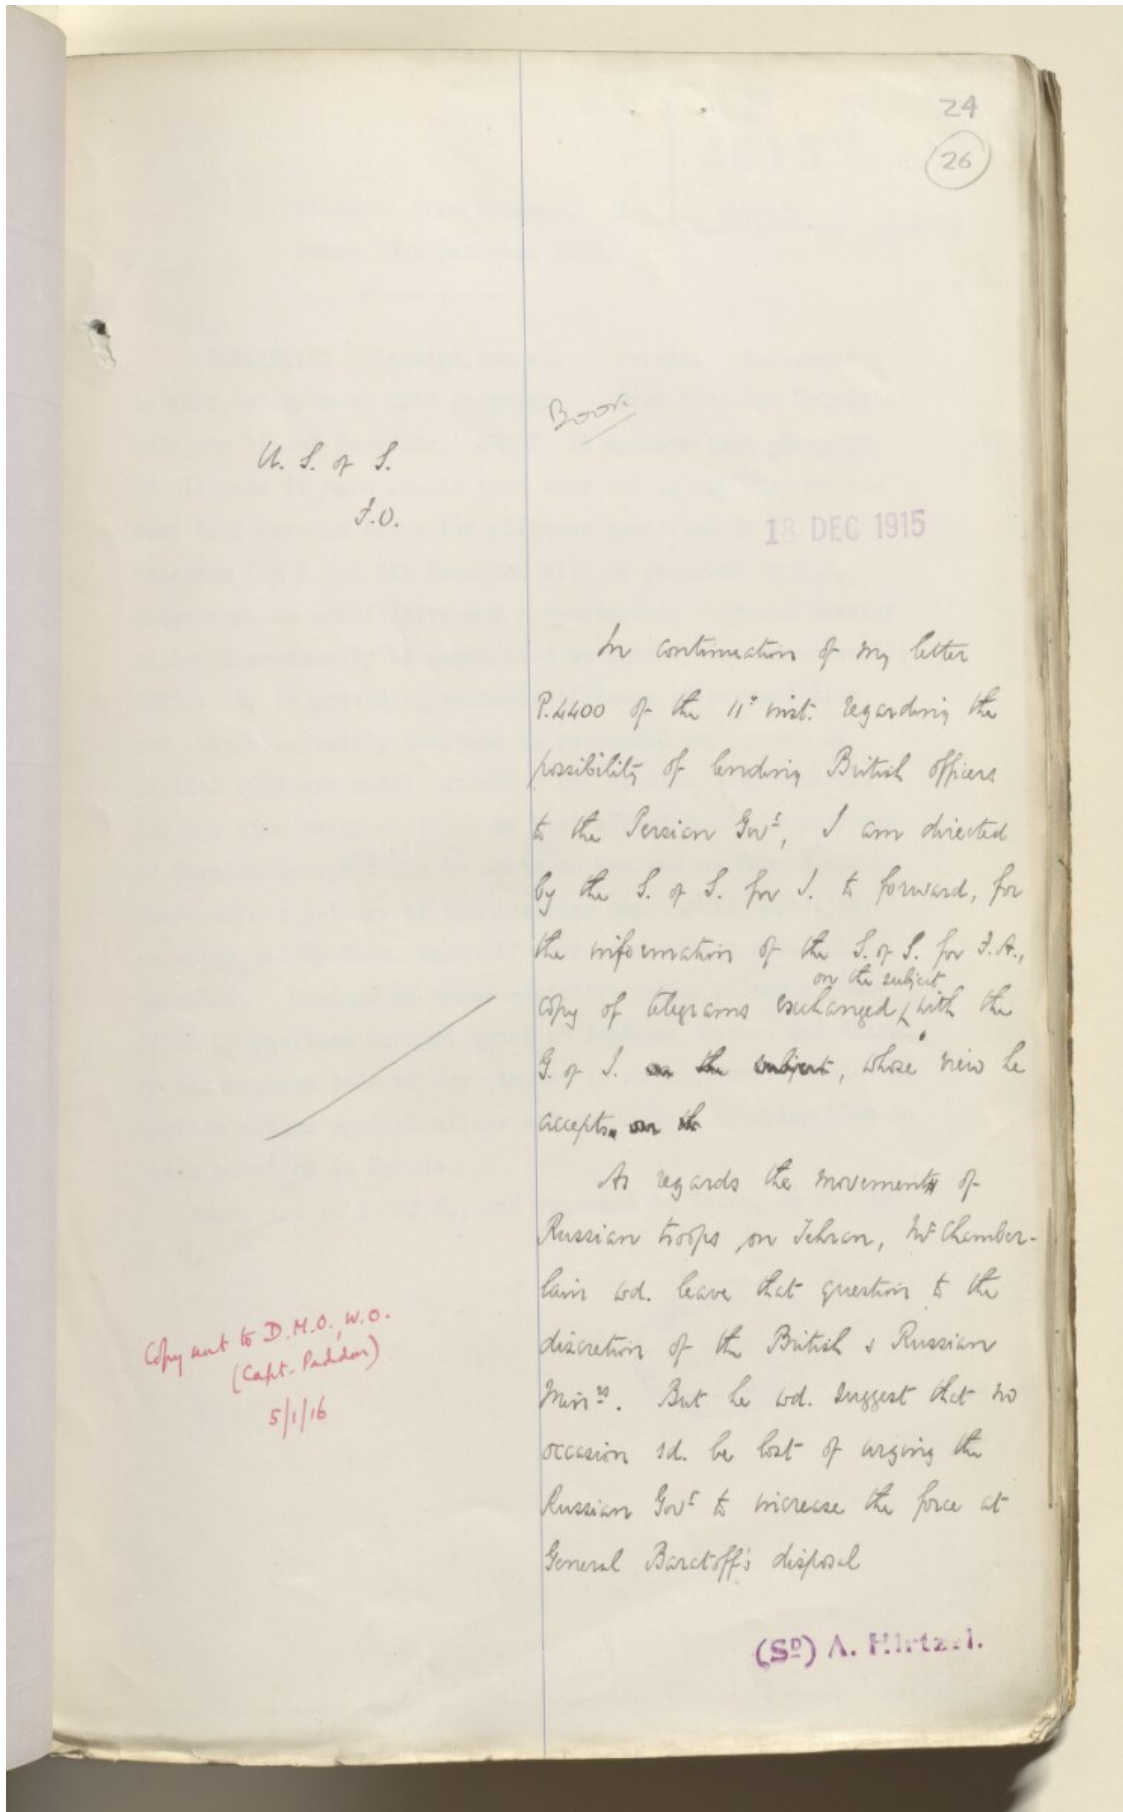 24
26
Book
U. S. of S.
F.O.
18 DEC 1915
In continuation of my letter
P.4400 of the 11th inst. regarding the
possibility of lending British officers
to the Persian Govt, I am directed
by the S. of S. for I. to forward, for
the information of the S. of S. for F.A.,
on the subject
copy of telegrams exchanged with the
G. of I. on the subject, whose view he
accepts. on the
As regards the movements of
Russian troops on Tehran, Mr Chamber-
lain wd. leave that question to the
discretion of the British & Russian
Minrs. But he wd. suggest that no
occasion sd. be lost of urging the
Russian Govt to increase the force at
General Baratoff's disposal
(Sd) A. Hirtzel.
Copy sent to D.M.O., W.O.
(Capt. Paddon)
5/1/16